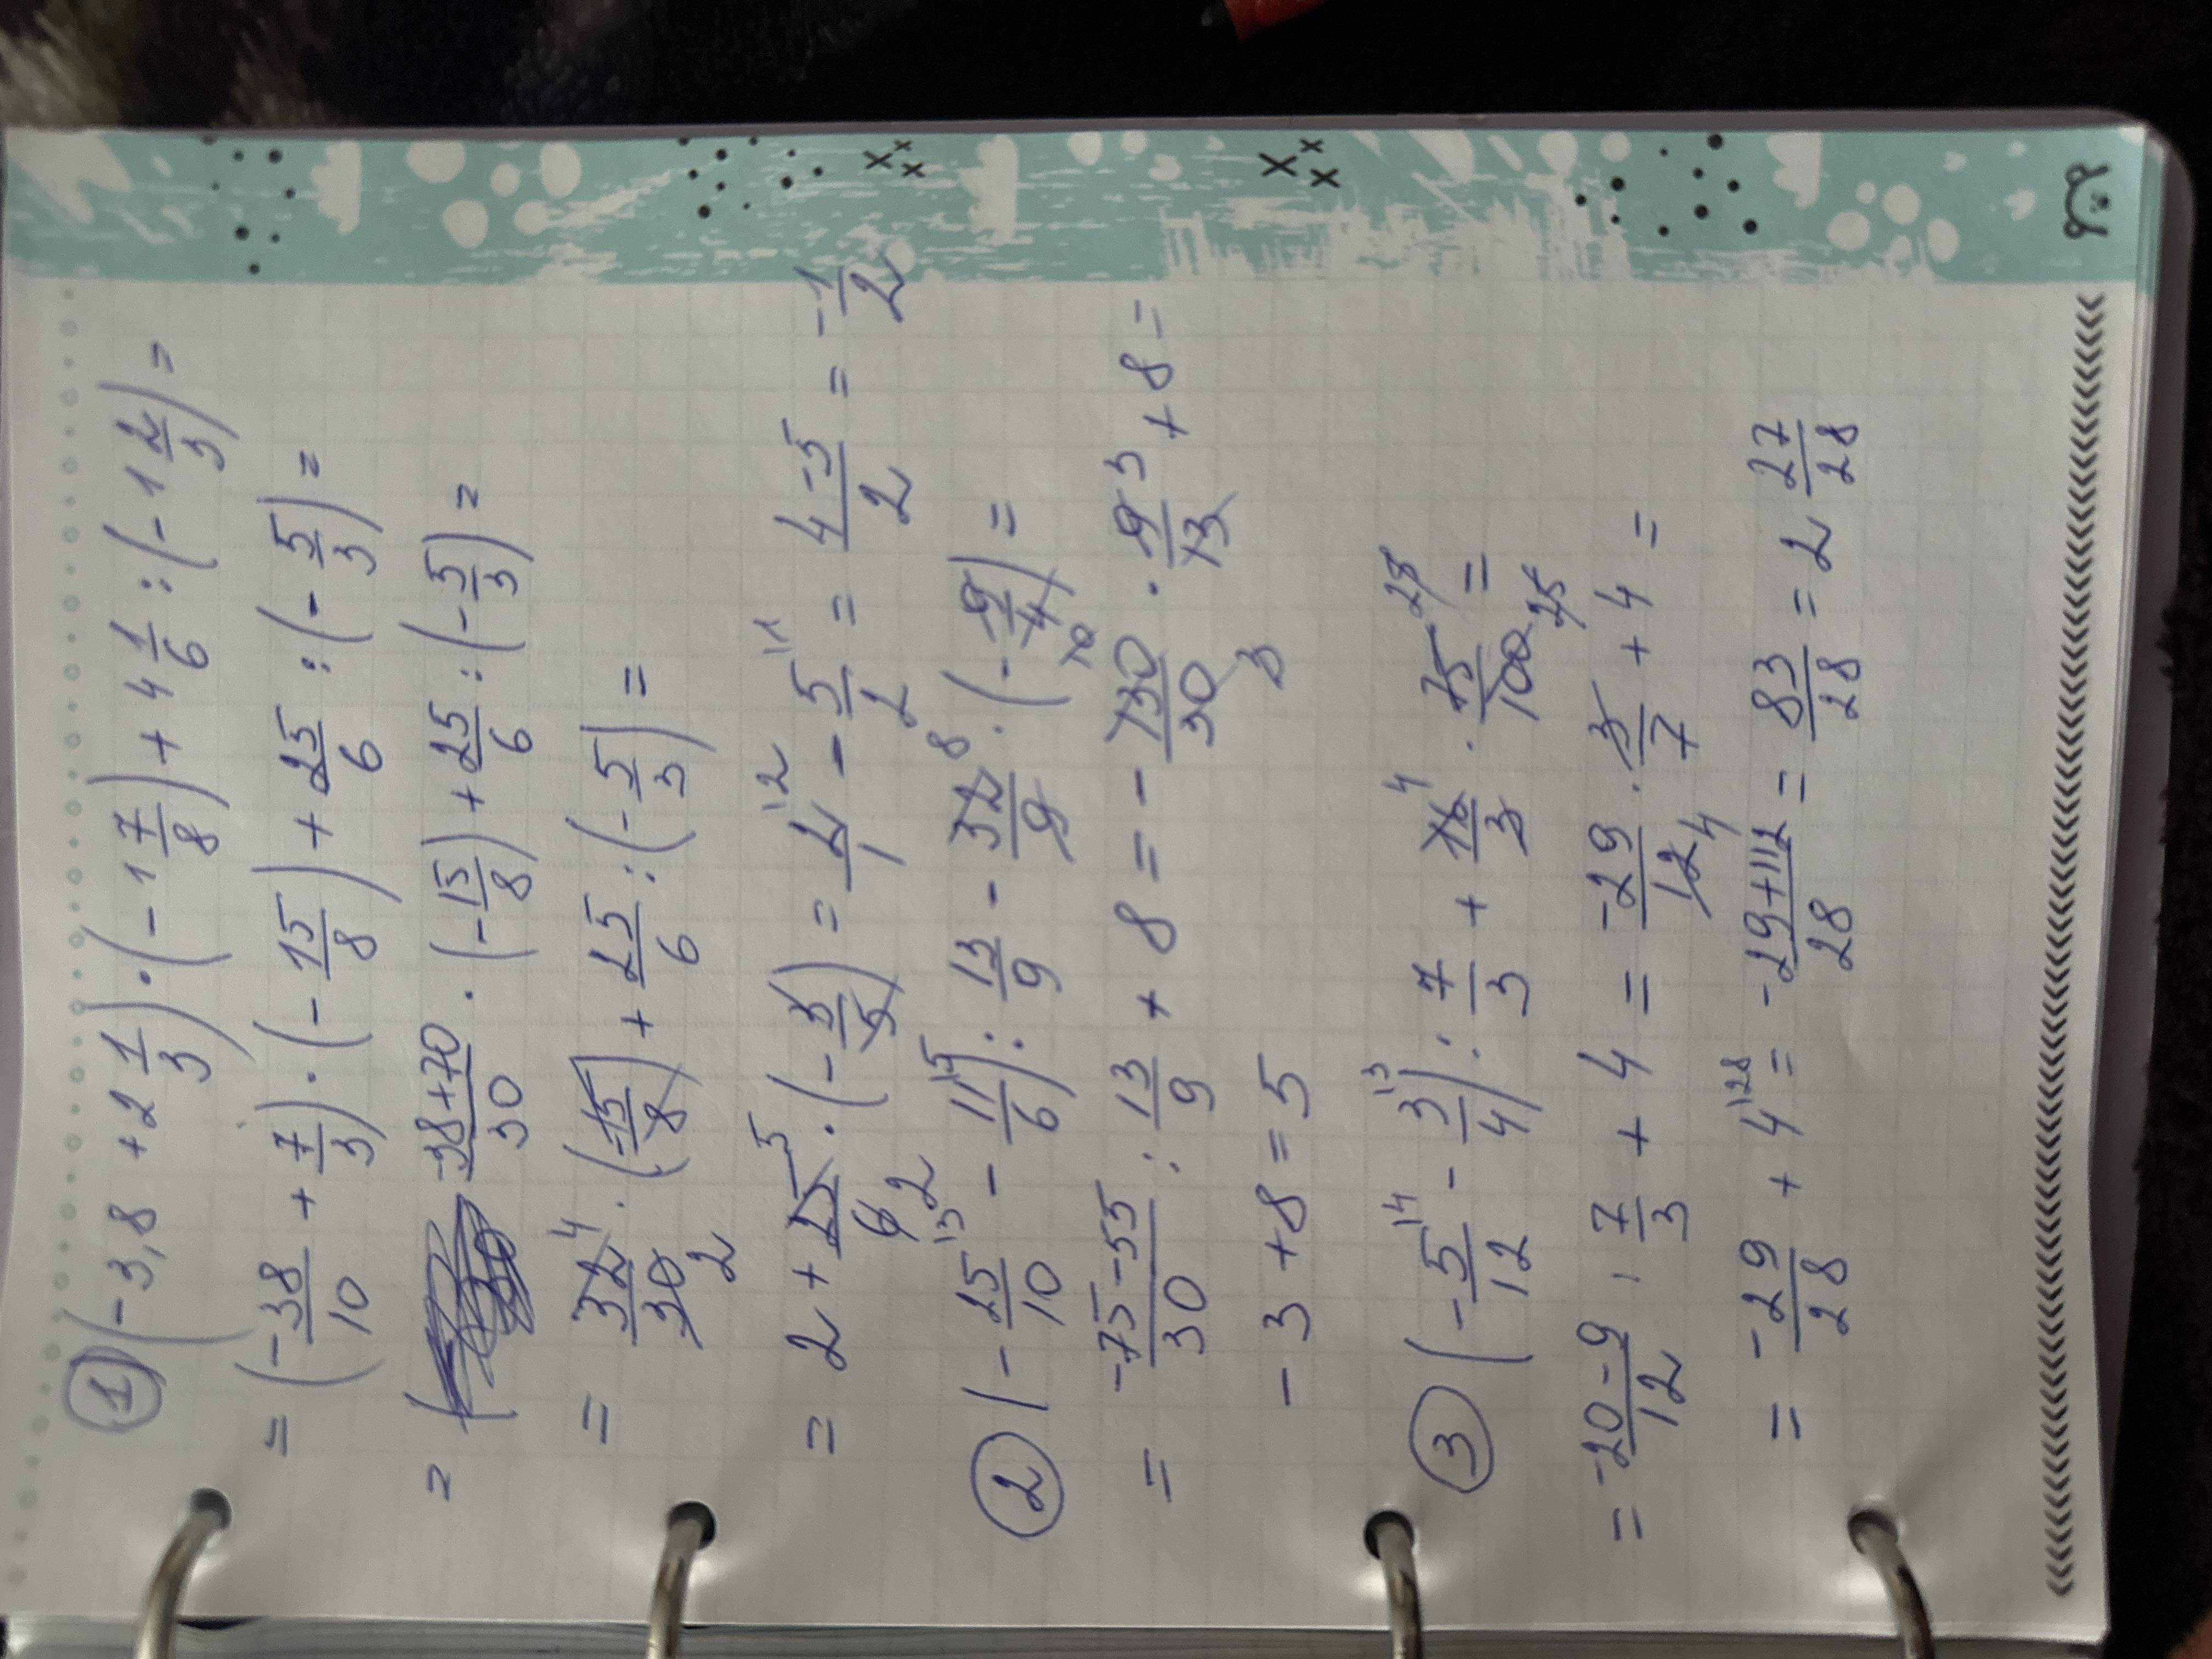 ① (-3,8 + 2 1/3) · (-1 7/8) + 4 1/6 : (-1 2/3) =
= (-38/10 + 7/3) · (-15/8) + 25/6 : (-5/3) =
= -38+70/30 · (-15/8) + 25/6 : (-5/3) =
= 32/30 4 2 · (-15/8) + 25/6 : (-5/3) =
= 2 + 25/6 5 2 · (-3/5) = 2/1 |2 - 5/2 |1 = 4-5/2 = -1/2
② (-25/10 |3 - 11/6 |5) : 13/9 - 32/9 8 · (-9/4) =
= -75-55/30 : 13/9 + 8 = -130/30 3 · 9/13 3 + 8 =
-3 + 8 = 5
③ (-5/12 |4 - 3/4 |3) : 7/3 + 16/3 4 · 75/100 25 25 =
= -20-9/12 : 7/3 + 4 = -29/12 4 · 3/7 + 4 =
= -29/28 + 4 |28 = -29+112/28 = 83/28 = 2 27/28